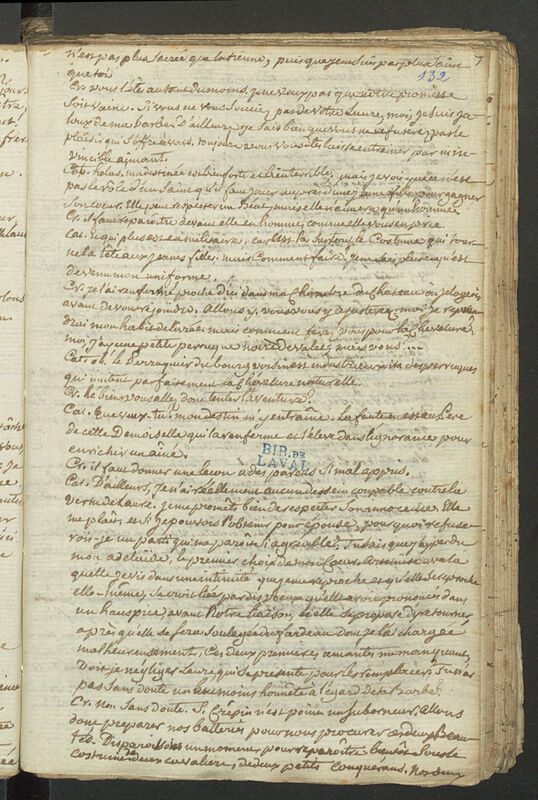 n'est pas plus sacrée que la tienne, puisque je ne suis pas plus saint
que toi
132
Cr. vous l'êtes autant du moins, je ne veux pas que notre promesse
soit vaine. Si vous ne vous souciez pas de votre Laure, moi, je suis ja-
loux de ma barbe. D'ailleurs je sais bien que vous ne refuserez pas le
plaisir qui s'offre à vous. toujours je vous vois entrainer par un in-
vincible aimant.
Cat. helas, ma destinée est bien forte et bien terrible, mais je vois que ce n'est
pas le rôle d'un Saint qu'il faut jouer auprès d'une jeune fille pour gagner
Son cœur. Elle peut respecter un Béat, mais elle n'aimera qu'un homme
Cr. il faut reparoître devant elle en homme, comme elle vous espere
Cat. Et qui plus est en militaire, car c'est là Surtout le Costume qui tour-
ne la tête aux jeunes filles. mais Comment faire? je ne sais plus ce qu'est
devenu mon uniforme.
Cr. je l'ai renfermé proche d'ici dans ma Chambre du Chateau où je logeois
avant de vous rejoindre. Allons y, vous vous y ajusterez, moi je repren-
drai mon habit de livrée. mais comment ferez vous pour la Chevelure?
moi, j'ai une petite perruque noire de valet, mais vous....
Cat. oh! le Perruquier du bourg voisin est industrieux, il a des perruques
qui imitent parfaitement la Chevelure naturelle.
Cr. hé bien vous allez donc tenter l'aventure?
Cat. Que veux-tu? mon destin m'y entraîne. La faute en est au Pere
de cette Demoiselle qui la renferme et l'élève dans l'ignorance pour
enrichir un ainé.
BIB. DE
LAVAL
Cr. il faut donner une leçon à des parens Si mal appris.
Cat. D'ailleurs, je n'ai réellement aucun dessein coupable contre la
vertu de Laure. je me promets bien de respecter Son innocence. Elle
me plait, et Si je pouvois l'obtenir pour épouse, pourquoi refuse-
rois-je un parti qui me paroit Si agréable? Tu sais que j'ai perdu
mon adelaïde, le premier choix de mon Cœur. avec la
quelle je vis dans une intimité que je me reproche et qu'elle Se reproche
elle-même, Se croit liée par des vœux qu'elle avoit prononcés dans
un hospice, avant Notre liaison, et elle Se propose d'y retourner
après qu'elle se sera Soulagée du fardeau dont je l'ai chargée
malheureusement. Ces deux premieres amantes me manquant,
Dois-je négliger Laure qui Se presente pour les remplacer? Tu n'as
pas Sans doute un dessein moins honnête à l'égard de ta barbe?
Cr. Non Sans doute. St. Crêpin n'est point un Suborneur, allons
donc preparer nos batteries pour nous procurer
Disparoissons un moment pour reparoître bientôt Sous le
costume de deux cavaliers, de deux petits Conquérans. Nos deux